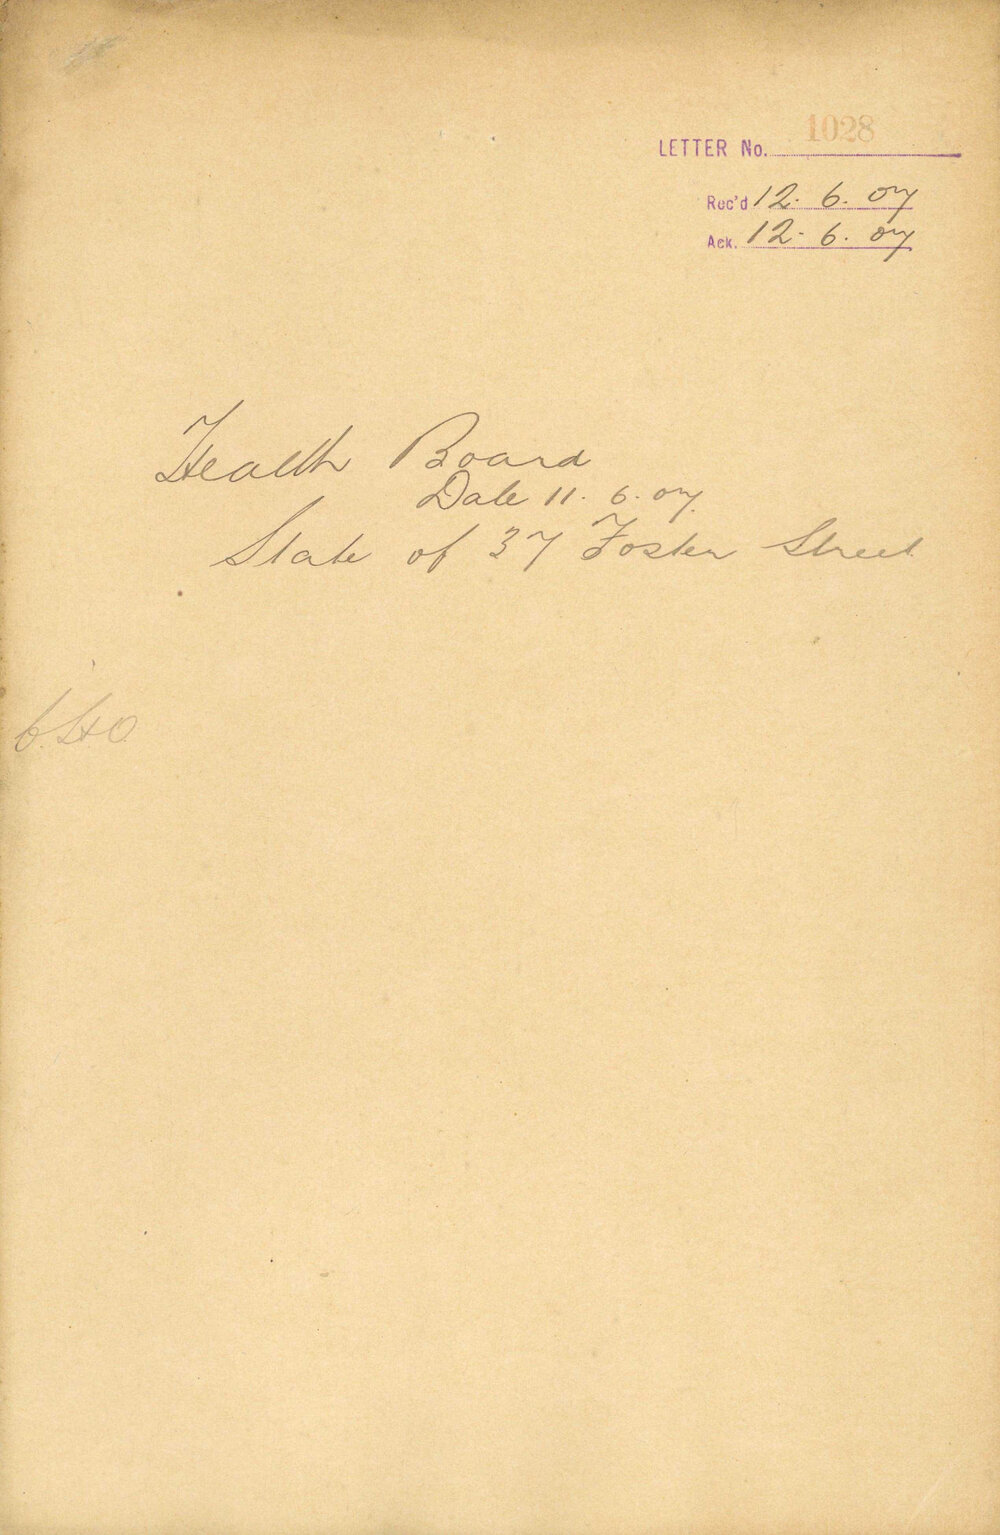 1028
LETTER No.
Rec'd 12. 6. 07
Ack. 12. 6. 07
Health Board
Date 11. 6. 07.
State of 37 Foster Street